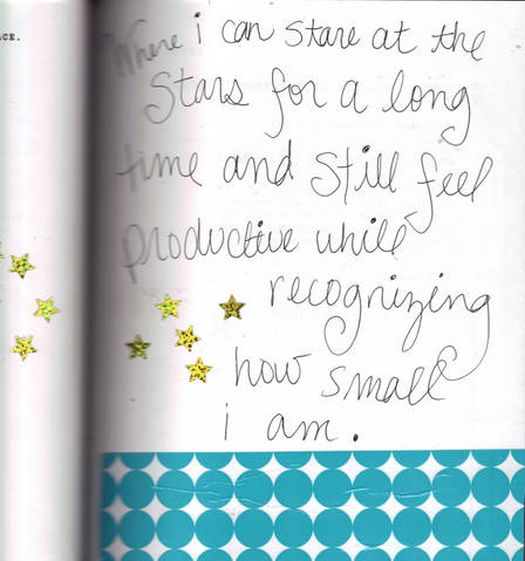 ACE.
Where i can stare at the
Stars for a long
time and still feel
productive while
recognizing
how small
i am.